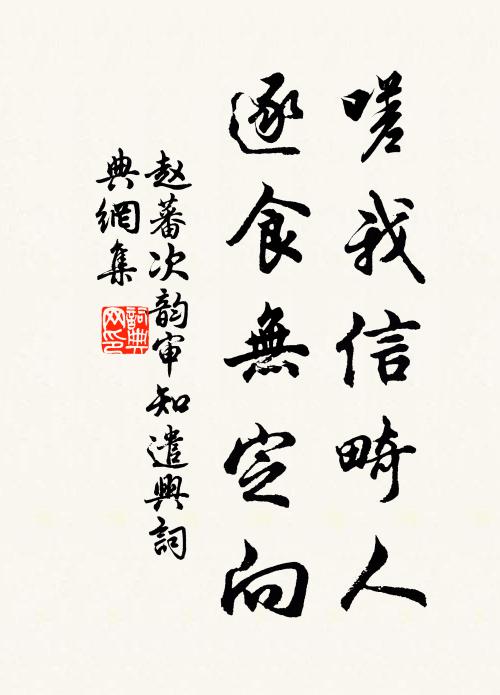 嗟我信畸人
逐食無定向
赵蕃次韵审知遣興詞
典網集
詞典網印